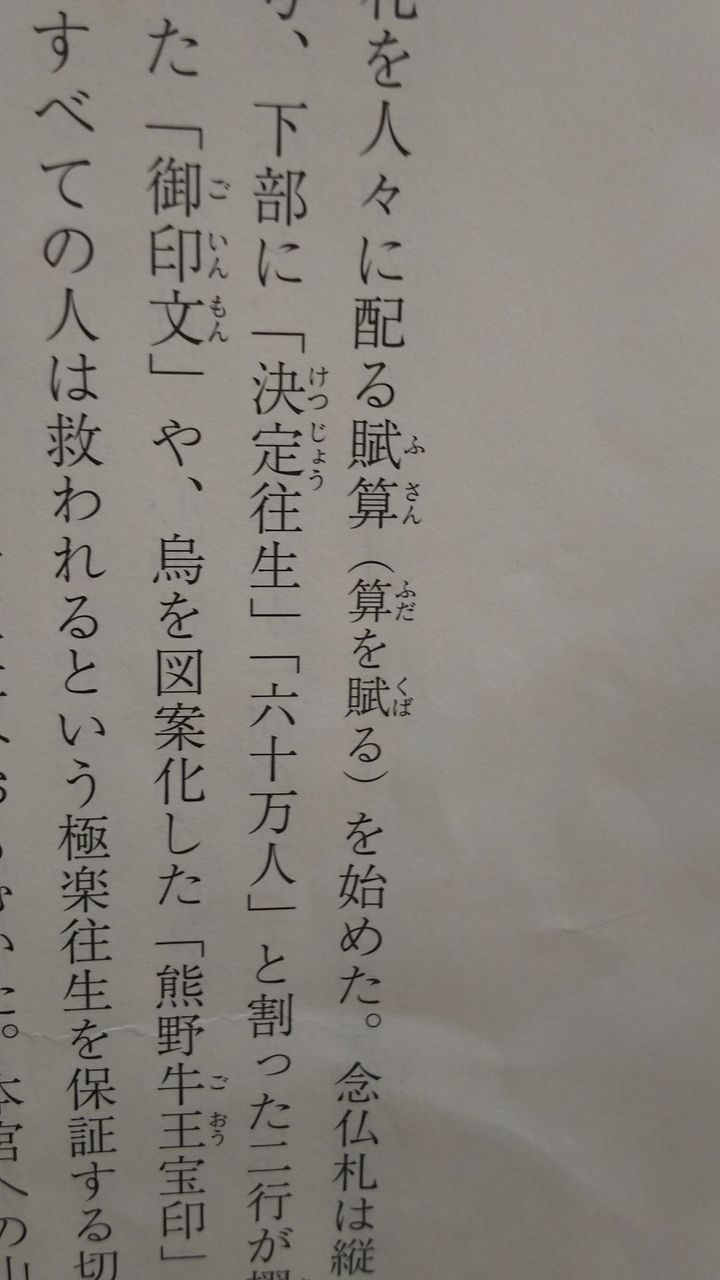 札を人々に配る賦算（算を賦る）を始めた。念仏札は縦
、下部に「決定往生」「六十万人」と割った二行が
た「御印文」や、烏を図案化した「熊野牛王宝印」
すべての人は救われるという極楽往生を保証する切
た。本宮への